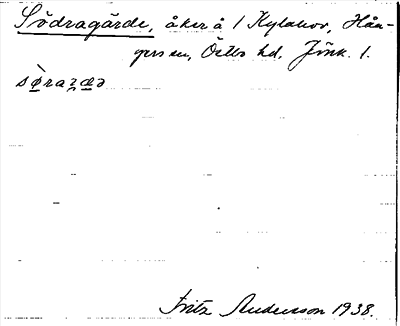 Södragärde, åker å 1 Kylahov, Hån-
gers sn, Östbo hd, Jönk. l.
sø̀raʒæə
Fritz Andersson 1938.